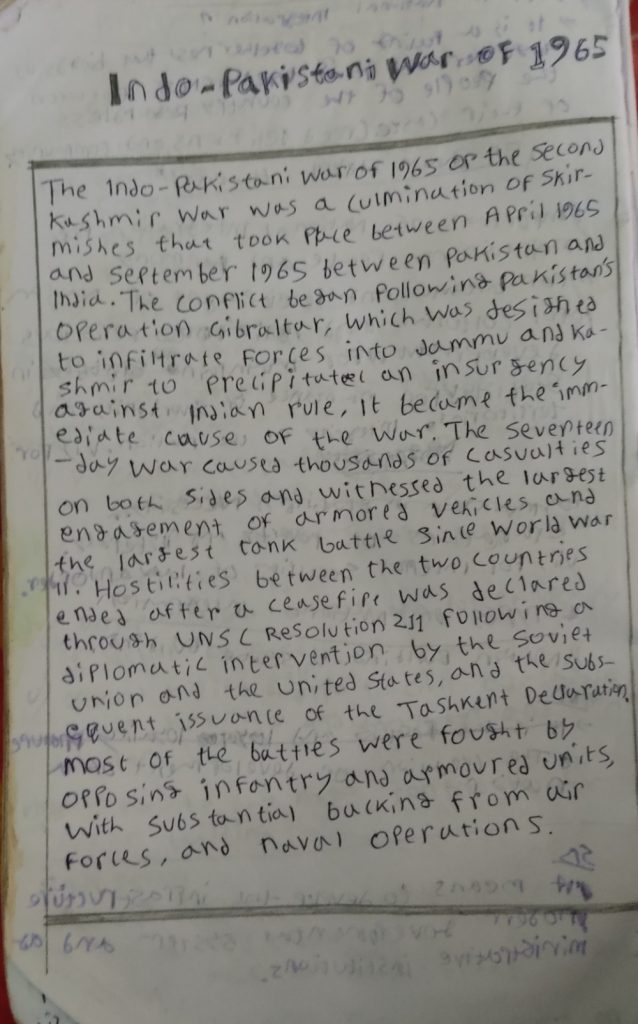 Indo-Pakistani War of 1965
The Indo-Pakistani War of 1965 or the second
Kashmir War was a culmination of skir-
mishes that took place between April 1965
and September 1965 between Pakistan and
India. The conflict began following Pakistan's
Operation Gibraltar, which was designed
to infiltrate forces into Jammu and Ka-
shmir to precipitate an insurgency
against Indian rule, It became the imm-
ediate cause of the war. The seventeen
-day war caused thousands of casualties
on both sides and witnessed the largest
engagement of armored vehicles and
the largest tank battle since World War
II. Hostilities between the two countries
ended after a ceasefire was declared
through UNSC Resolution 211 following a
diplomatic intervention by the Soviet
union and the United States, and the subs-
equent issuance of the Tashkent Declaration.
most of the battles were fought by
opposing infantry and armoured units,
with substantial backing from air
forces, and naval operations.